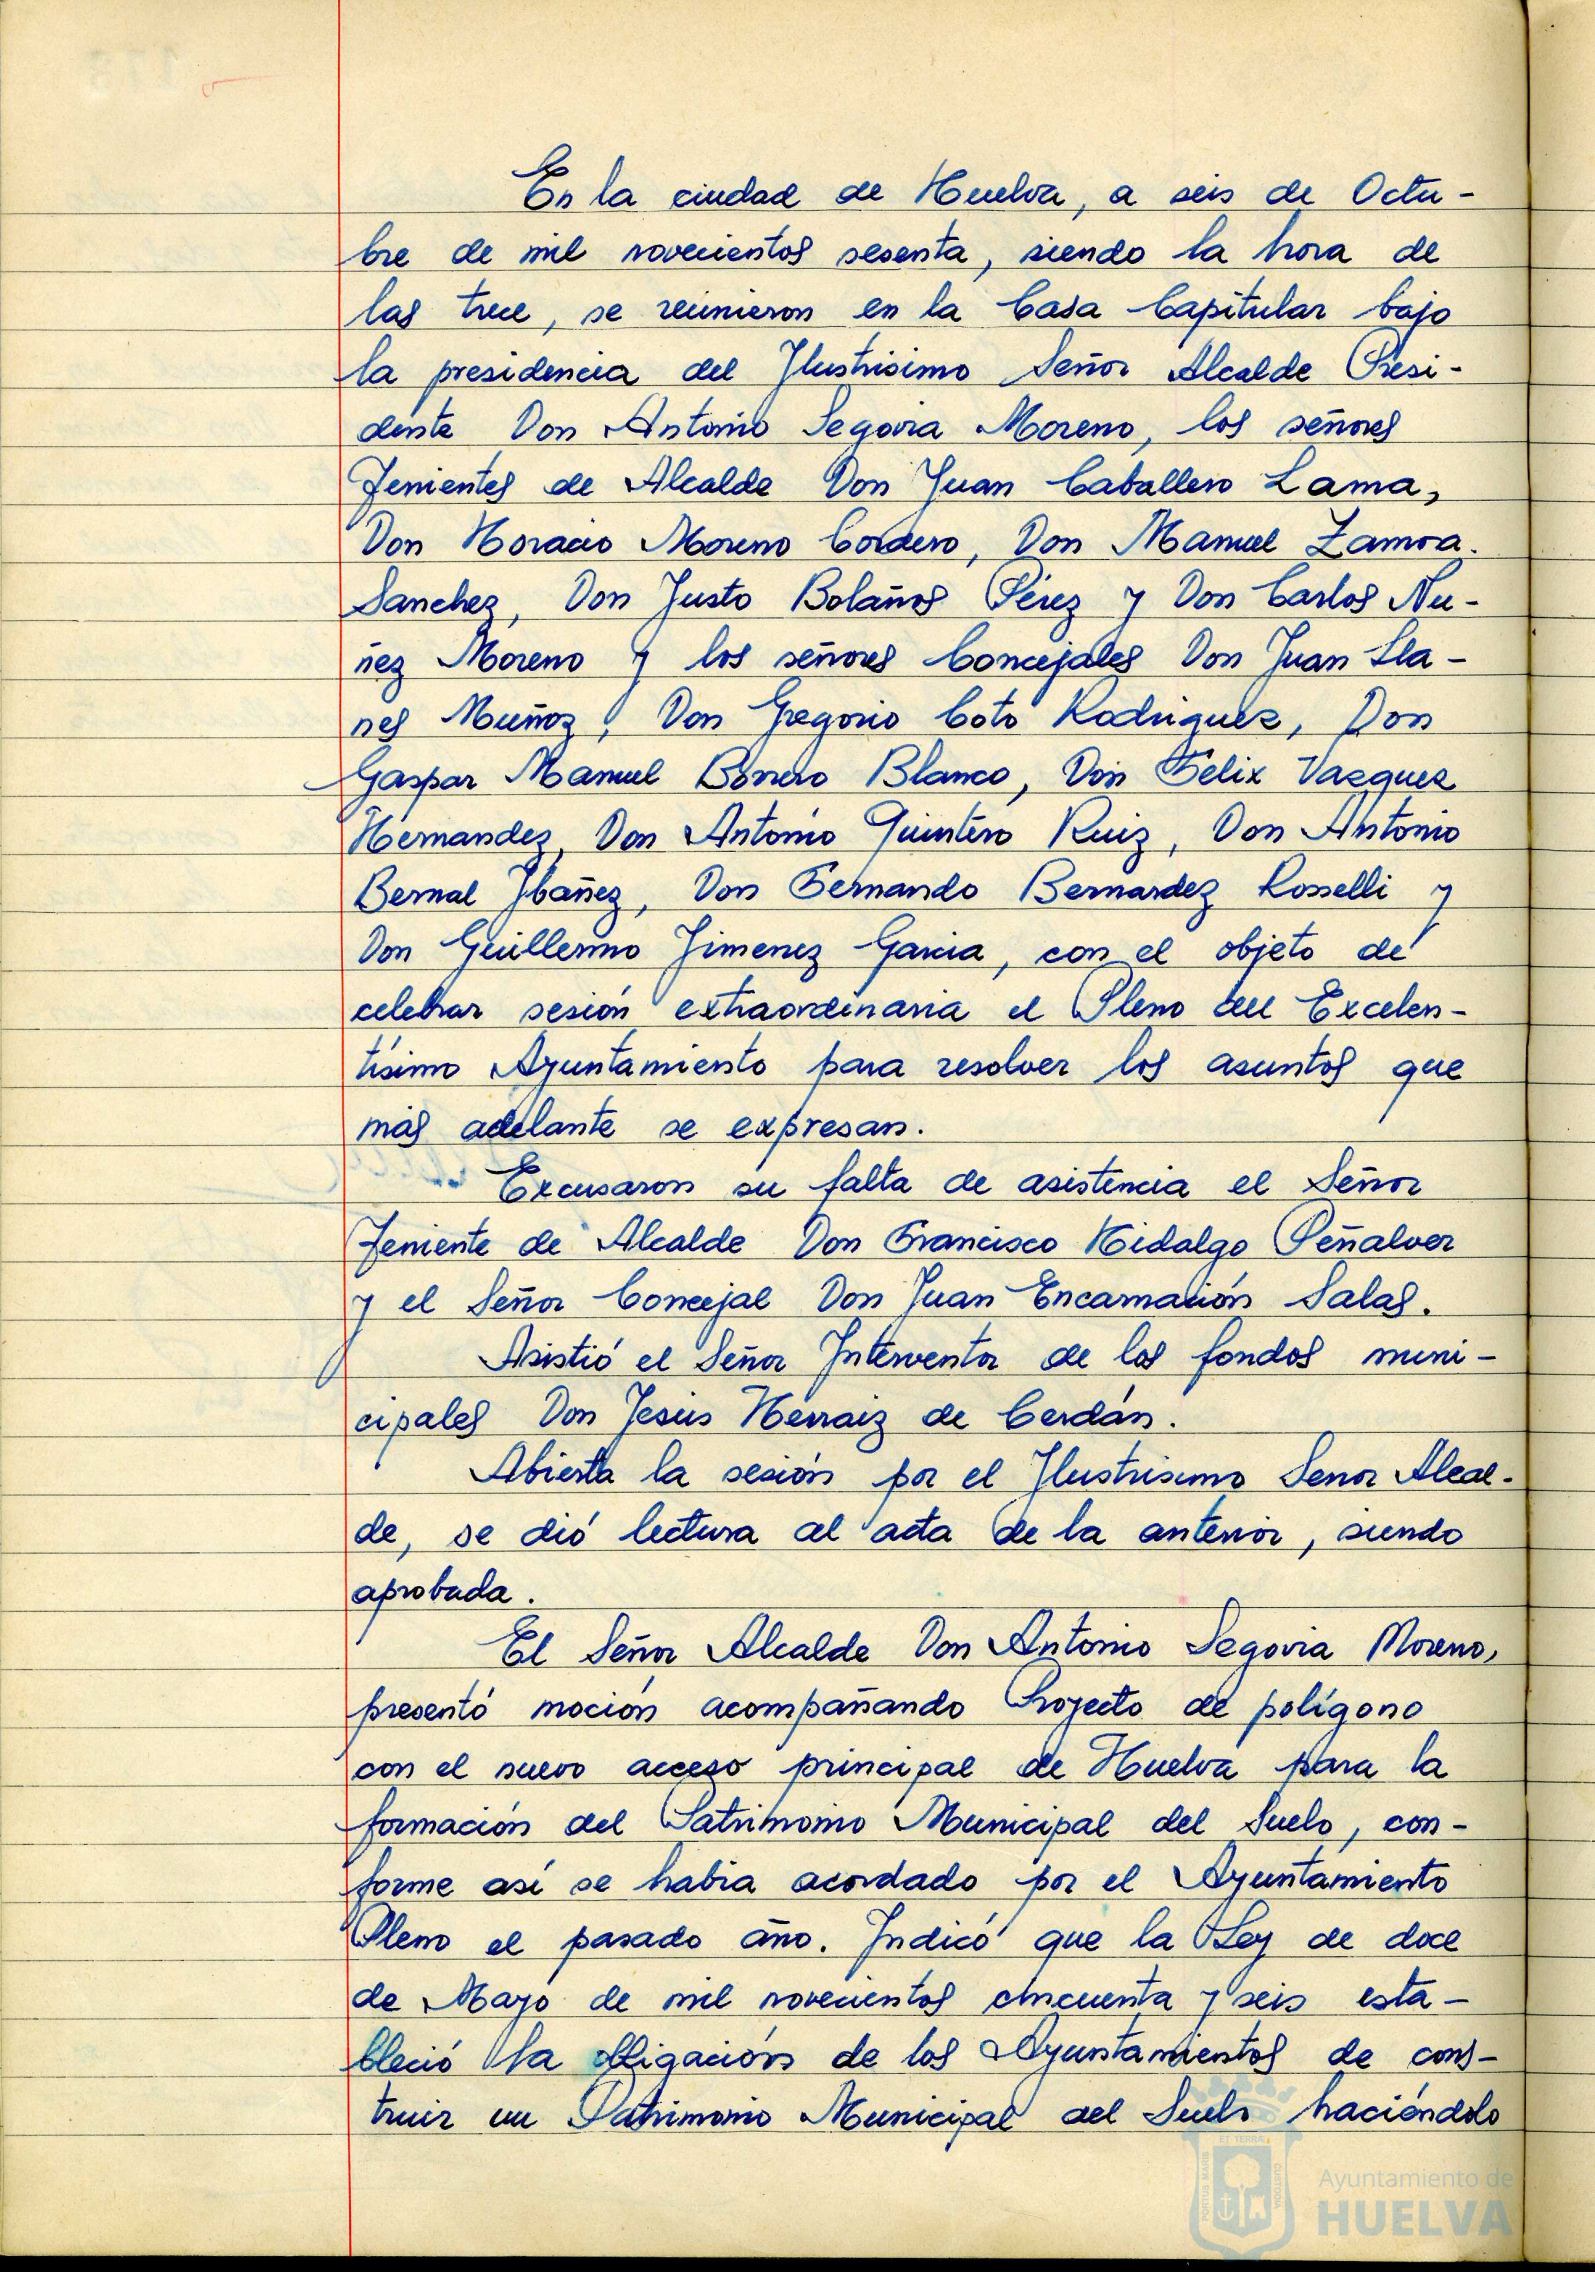 En la ciudad de Huelva, a seis de Octu-
bre de mil novecientos sesenta, siendo la hora de
las trece, se reunieron en la Casa Capitular bajo
la presidencia del Ilustrisimo Señor Alcalde Presi-
dente Don Antonio Segovia Moreno, los señores
Tenientes de Alcalde Don Juan Caballero Lama,
Don Horacio Moreno Cordero, Don Manuel Zamora
Sanchez, Don Justo Bolaños Pérez y Don Carlos Nu-
ñez Moreno y los señores Concejales Don Juan Lla-
nes Muñoz, Don Gregorio Coto Rodriguez, Don
Gaspar Manuel Borrero Blanco, Don Felix Vazquez
Hernandez, Don Antonio Quintero Ruiz, Don Antonio
Bernal Ibañez, Don Fernando Bernardez Rosselli y
Don Guillermo Jimenez Garcia, con el objeto de
celebrar sesión extraordinaria el Pleno del Excelen-
tísimo Ayuntamiento para resolver los asuntos que
más adelante se expresan.
Excusaron su falta de asistencia el Señor
Teniente de Alcalde Don Francisco Hidalgo Peñalver
y el Señor Concejal Don Juan Encarnación Salas.
Asistió el Señor Interventor de los fondos muni-
cipales Don Jesús Herraiz de Cerdán.
Abierta la sesión por el Ilustrisimo Senor Alcal-
de, se dió lectura al acta de la anterior, siendo
aprobada.
El Señor Alcalde Don Antonio Segovia Moreno,
presentó moción acompañando Proyecto de polígono
con el nuevo acceso principal de Huelva para la
formación del Patrimonio Municipal del Suelo, con-
forme así se habia acordado por el Ayuntamiento
Pleno el pasado año. Indicó que la Ley de doce
de Mayo de mil novecientos cincuenta y seis esta-
bleció la obligación de los Ayuntamientos de cons-
truir un Patrimonio Municipal del Suelo haciéndolo
PORTUS MARIS ET TERRAE CUSTODIA
Ayuntamiento de
HUELVA